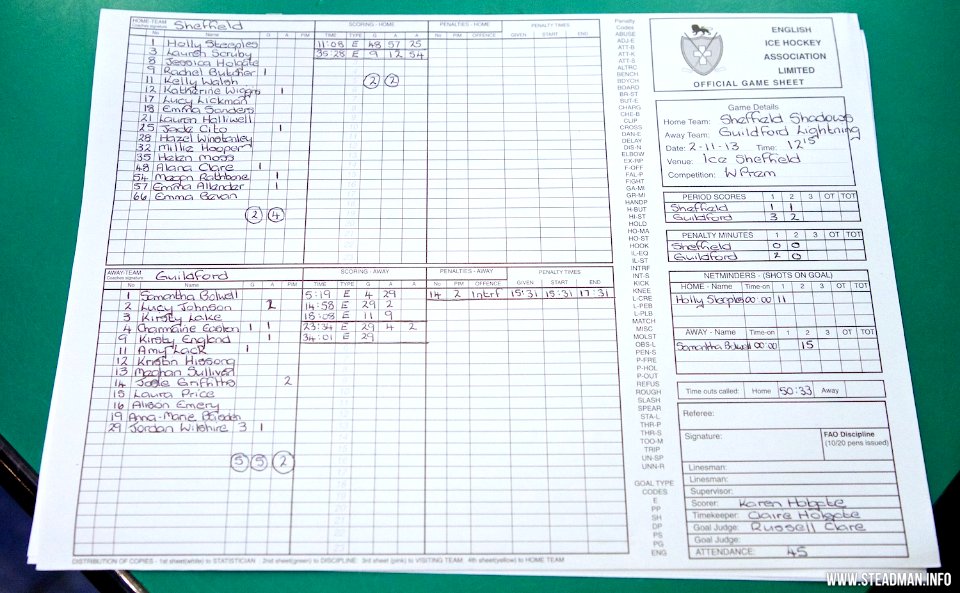 HOME-TEAM Sheffield
Coaches signature
SCORING - HOME PENALTIES - HOME PENALTY TIMES
No Name G A PIM TIME TYPE G A A No PIM OFFENCE GIVEN START END
1 Holly Steeples 11:08 E 48 57 25
3 Lauren Scruby 35:28 E 9 12 54
8 Jessica Holgate
9 Rachel Butcher 1
11 Kelly Walsh 2 2
12 Katherine Wiggins 1
17 Lucy Lickman
18 Emma Sanders
21 Lauren Halliwell
25 Jade Cito 1
28 Hazel Winstanley
32 Millie Hooper
35 Helen Moss
48 Alana Clare 1
54 Megan Rathbone 1
57 Emma Allender 1
66 Emma Bevan
2 4
AWAY-TEAM Guildford
Coaches signature
SCORING - AWAY PENALTIES - AWAY PENALTY TIMES
No Name G A PIM TIME TYPE G A A No PIM OFFENCE GIVEN START END
1 Samantha Bolwell 5:19 E 4 29 14 2 Intrf 15:31 15:31 17:31
2 Lucy Johnson 2 14:58 E 29 2
3 Kirsty Lake 15:08 E 11 9
4 Charmaine 1 1 23:34 E 29 4 2
9 Kirsty England 1 34:01 E 29
11 Amy Lack 1
12 Kristin Hissong
13 Meghan Sullivan
14 Josie Griffiths 2
15 Laura Price
16 Alison Emery
19 Anna-Marie
29 Jordan Wilshire 3 1
5 5 2
DISTRIBUTION OF COPIES - 1st sheet(white) to STATISTICIAN 2nd sheet(green) to DISCIPLINE 3rd sheet (pink) to VISITING TEAM 4th sheet(yellow) to HOME TEAM
Penalty
Codes
ABUSE
ADJ-E
ATT-B
ATT-K
ATT-S
ALTRC
BENCH
BDYCH
BOARD
BR-ST
BUT-E
CHARG
CHE-B
CLIP
CROSS
DAN-E
DELAY
DIS-N
ELBOW
EX-RP
F-OFF
FAL-P
FIGHT
GA-MI
GR-MI
HANDP
H-BUT
HI-ST
HOLD
HO-MA
HO-ST
HOOK
IL-EQ
IL-ST
INTRF
INT-S
KICK
KNEE
L-CRE
L-PEB
L-PLB
MATCH
MISC
MOLST
OBS-L
PEN-S
P-FRE
P-HOL
P-OUT
REFUS
ROUGH
SLASH
SPEAR
STA-L
THR-P
THR-S
TOO-M
TRIP
UN-SP
UNN-R
GOAL TYPE
CODES
E
PP
SH
DP
PS
PG
ENG
ENGLISH
ICE HOCKEY
ASSOCIATION
LIMITED
OFFICIAL GAME SHEET
Game Details
Home Team: Sheffield Shadows
Away Team: Guildford Lightning
Date: 2-11-13 Time: 12 15
Venue: Ice Sheffield
Competition: WPrem
PERIOD SCORES 1 2 3 OT TOT
Sheffield 1 1
Guildford 3 2
PENALTY MINUTES 1 2 3 OT TOT
Sheffield 0 0
Guildford 2 0
NETMINDERS - (SHOTS ON GOAL)
HOME - Name Time-on 1 2 3 OT TOT
Holly Steeples 00:00 11
AWAY - Name Time-on 1 2 3 OT TOT
Samantha Bolwell 00:00 15
Time outs called: Home 50:33 Away
Referee:
Signature: FAO Discipline
(10/20 pens issued)
Linesman:
Linesman:
Supervisor:
Scorer: Karen Holgate
Timekeeper: Claire Holgate
Goal Judge: Russell Clare
Goal Judge:
ATTENDANCE: 45
WWW.STEADMAN.INFO